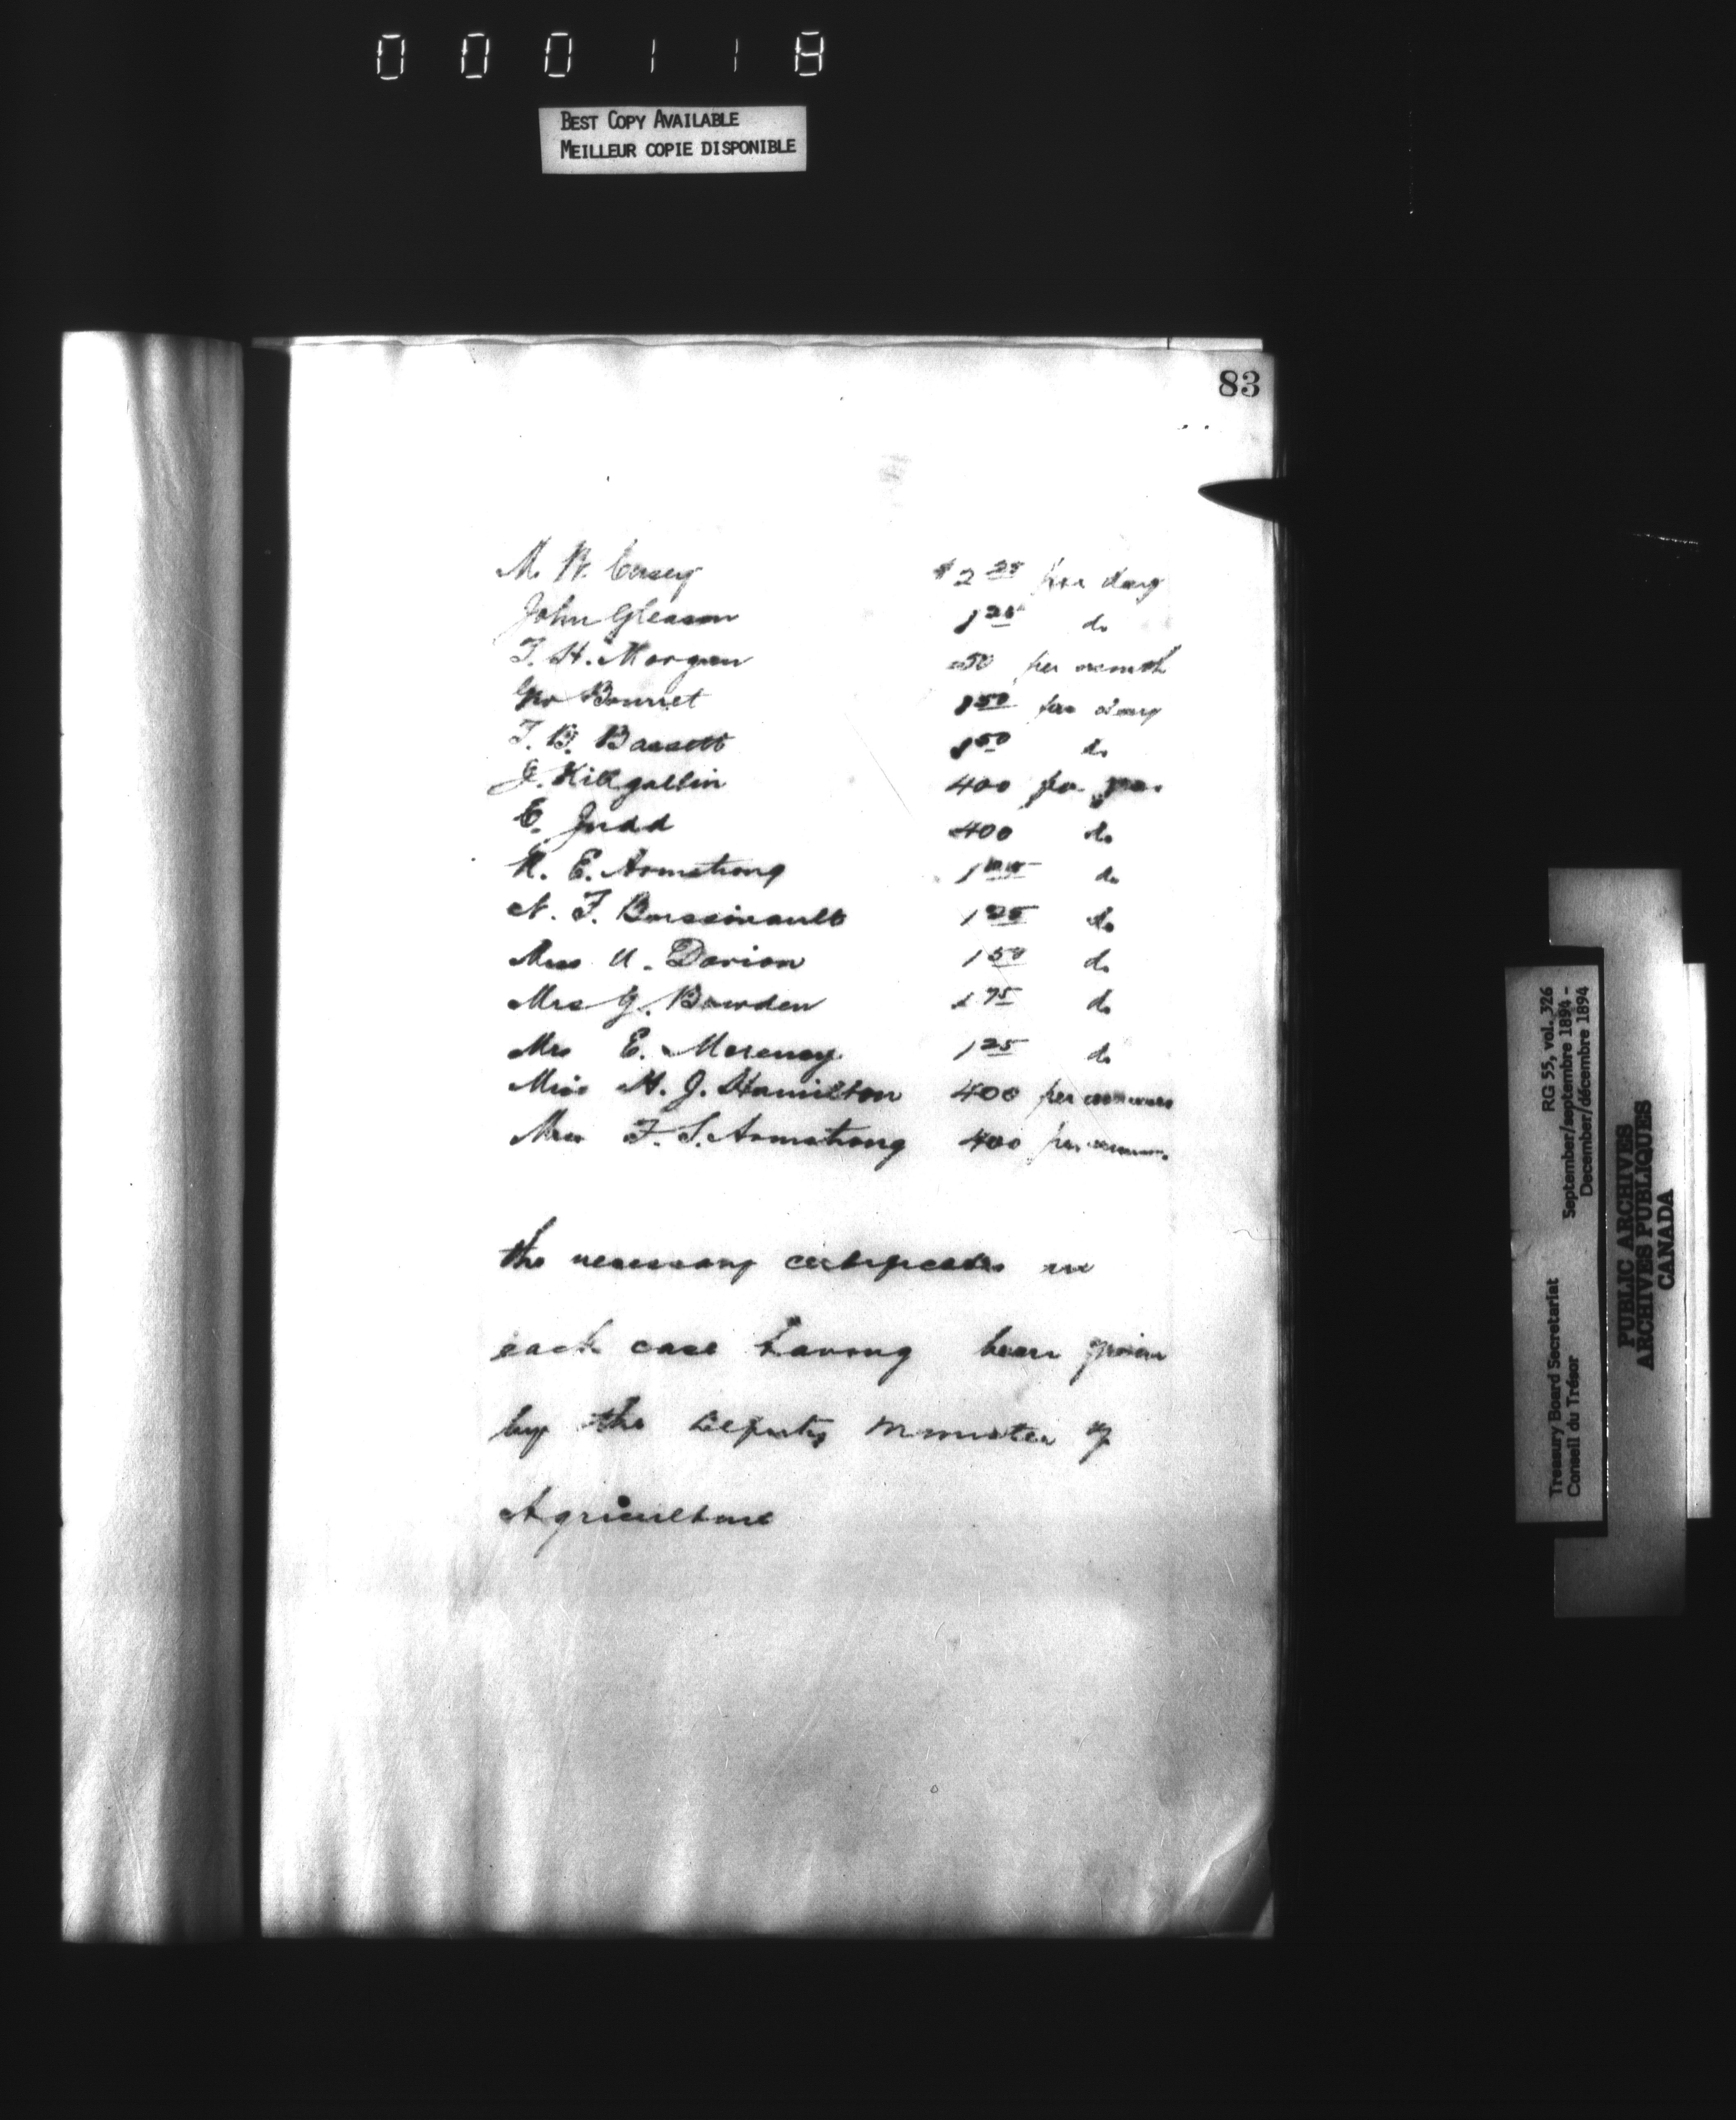 000118
BEST COPY AVAILABLE
MEILLEUR COPIE DISPONIBLE
83
M. W. Casey $2 25 per day
John Gleason 1 25 do
T. H. Morgan 50 per month
Geo Bonnet 1 50 per day
T. B. Bassett 1 50 do
J. Kilgallin 400 per year
E. Judd 400 do
R. E. Armstrong 1 do
N. F. 1 25 do
Mrs U. Dorion 1 50 do
Mrs G. Bowden 1 75 do
Mrs E. 1 25 do
Miss M. J. Hamilton 400 per annum
Mrs F. S. Armstrong 400 per annum
the necessary certificates in
each case having been given
by the Deputy Minister of
Agriculture
Treasury Board Secretariat RG 55, vol. 326
Conseil du Trésor September/septembre 1894 -
December/décembre 1894
PUBLIC ARCHIVES
ARCHIVES PUBLIQUES
CANADA